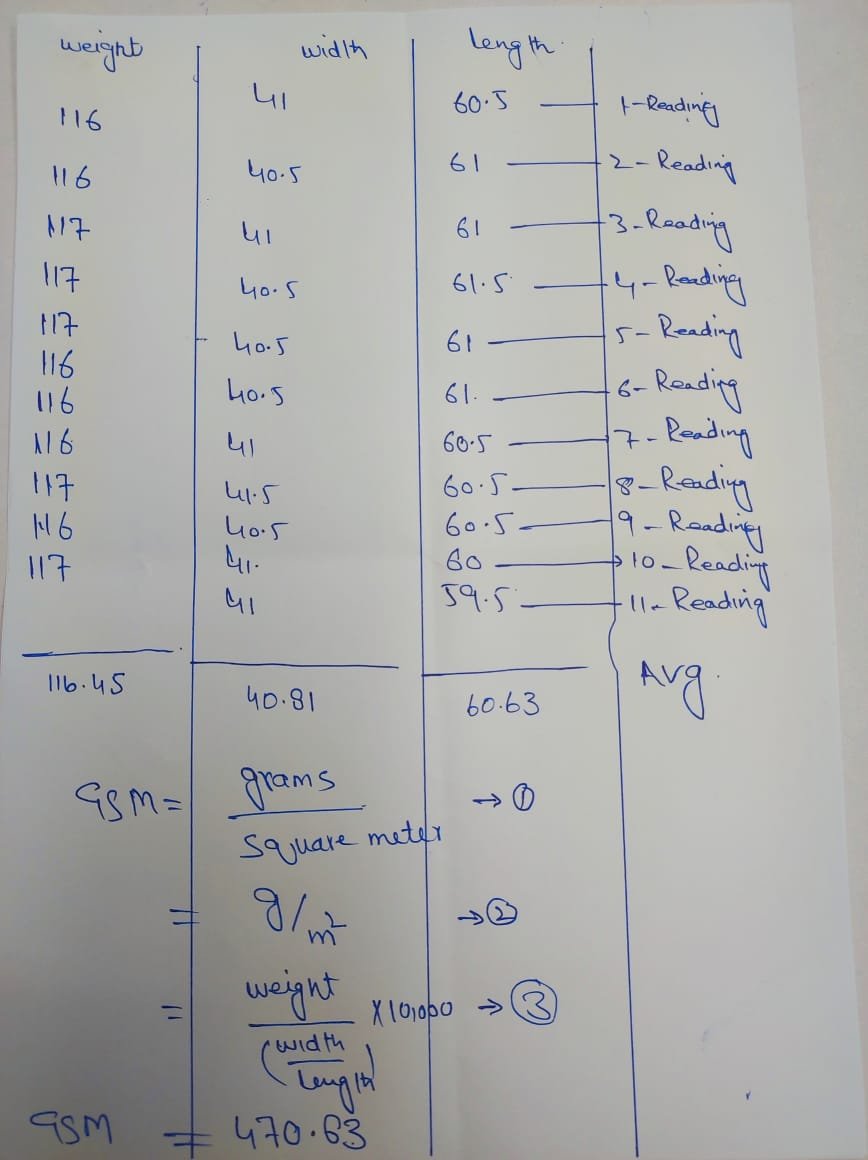 weight width length
116 41 60.5 1-Reading
116 40.5 61 2-Reading
117 41 61 3-Reading
117 40.5 61.5 4-Reading
117 40.5 61 5-Reading
116 40.5 61. 6-Reading
116 41 60.5 7-Reading
116 41.5 60.5 8-Reading
117 40.5 60.5 9-Reading
116 41. 60 10-Reading
117 41 59.5 11-Reading
116.45 40.81 60.63 Avg.
GSM = grams → ①
square meter
= g/m² → ②
= weight x10,000 → ③
(width
length)
GSM = 470.63